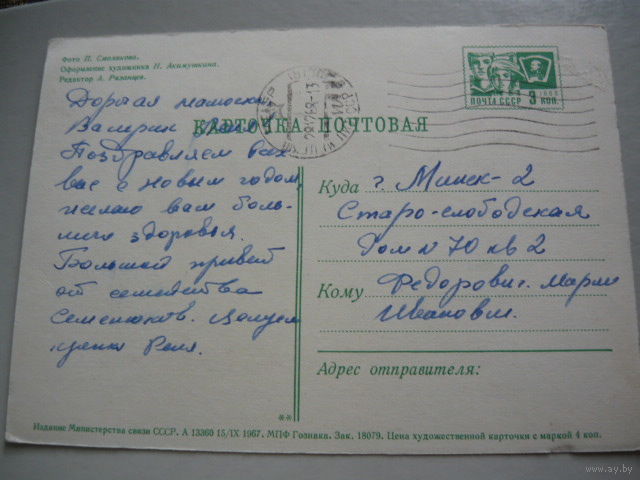 Фото П. Смолякова.
Оформление художника Н. Акимушкина.
Редактор А. Рязанцев.
ПОЧТА СССР 3 коп.
1966
КАРТОЧКА ПОЧТОВАЯ
Дорогая
Валерик
Поздравляем Вас
вас с новым годом,
желаю вам боль-
шого здоровья.
Большой привет
от семейства
Семенюков. Целуем
Реля.
Куда г. Минск-2
Старо-слободская
Дом N 70 кв 2
Кому Федорович. Марии
Ивановны.
Адрес отправителя:
**
Издание Министерства связи СССР. А 13360 15/IX 1967. МПФ Гознака. Зак. 18079. Цена художественной карточки с маркой 4 коп.
www.ay.by